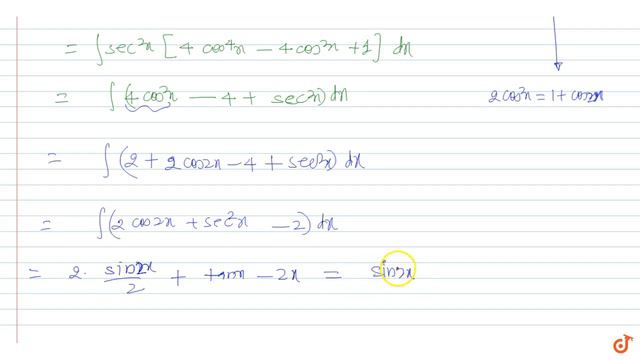 = ∫sec²x [4 cos⁴x − 4cos²x + 1] dx
= ∫(4cos²x − 4 + sec²x) dx
2cos²x = 1 + cos2x
= ∫(2 + 2cos2x − 4 + sec²x) dx
= ∫(2cos2x + sec²x − 2) dx
= 2. sin2x/2 + tanx − 2x = sin2x